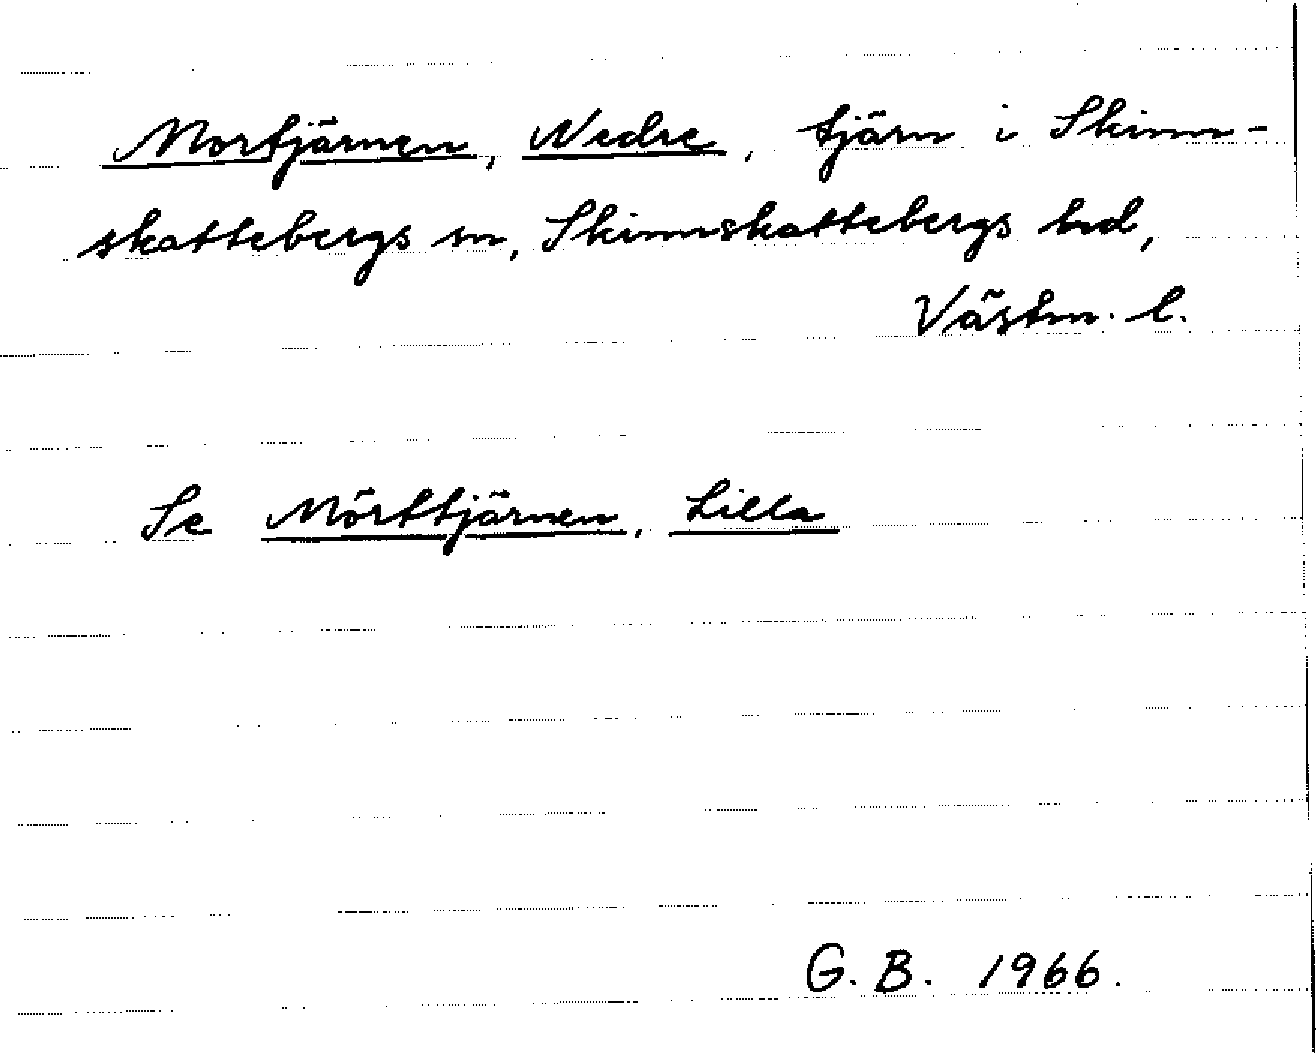 Mortjärnen, Nedre, tjärn i Skinn-
skattebergs sn, Skinnskattebergs hd,
Västm. l.
Se Mörttjärnen, Lilla
G. B. 1966.